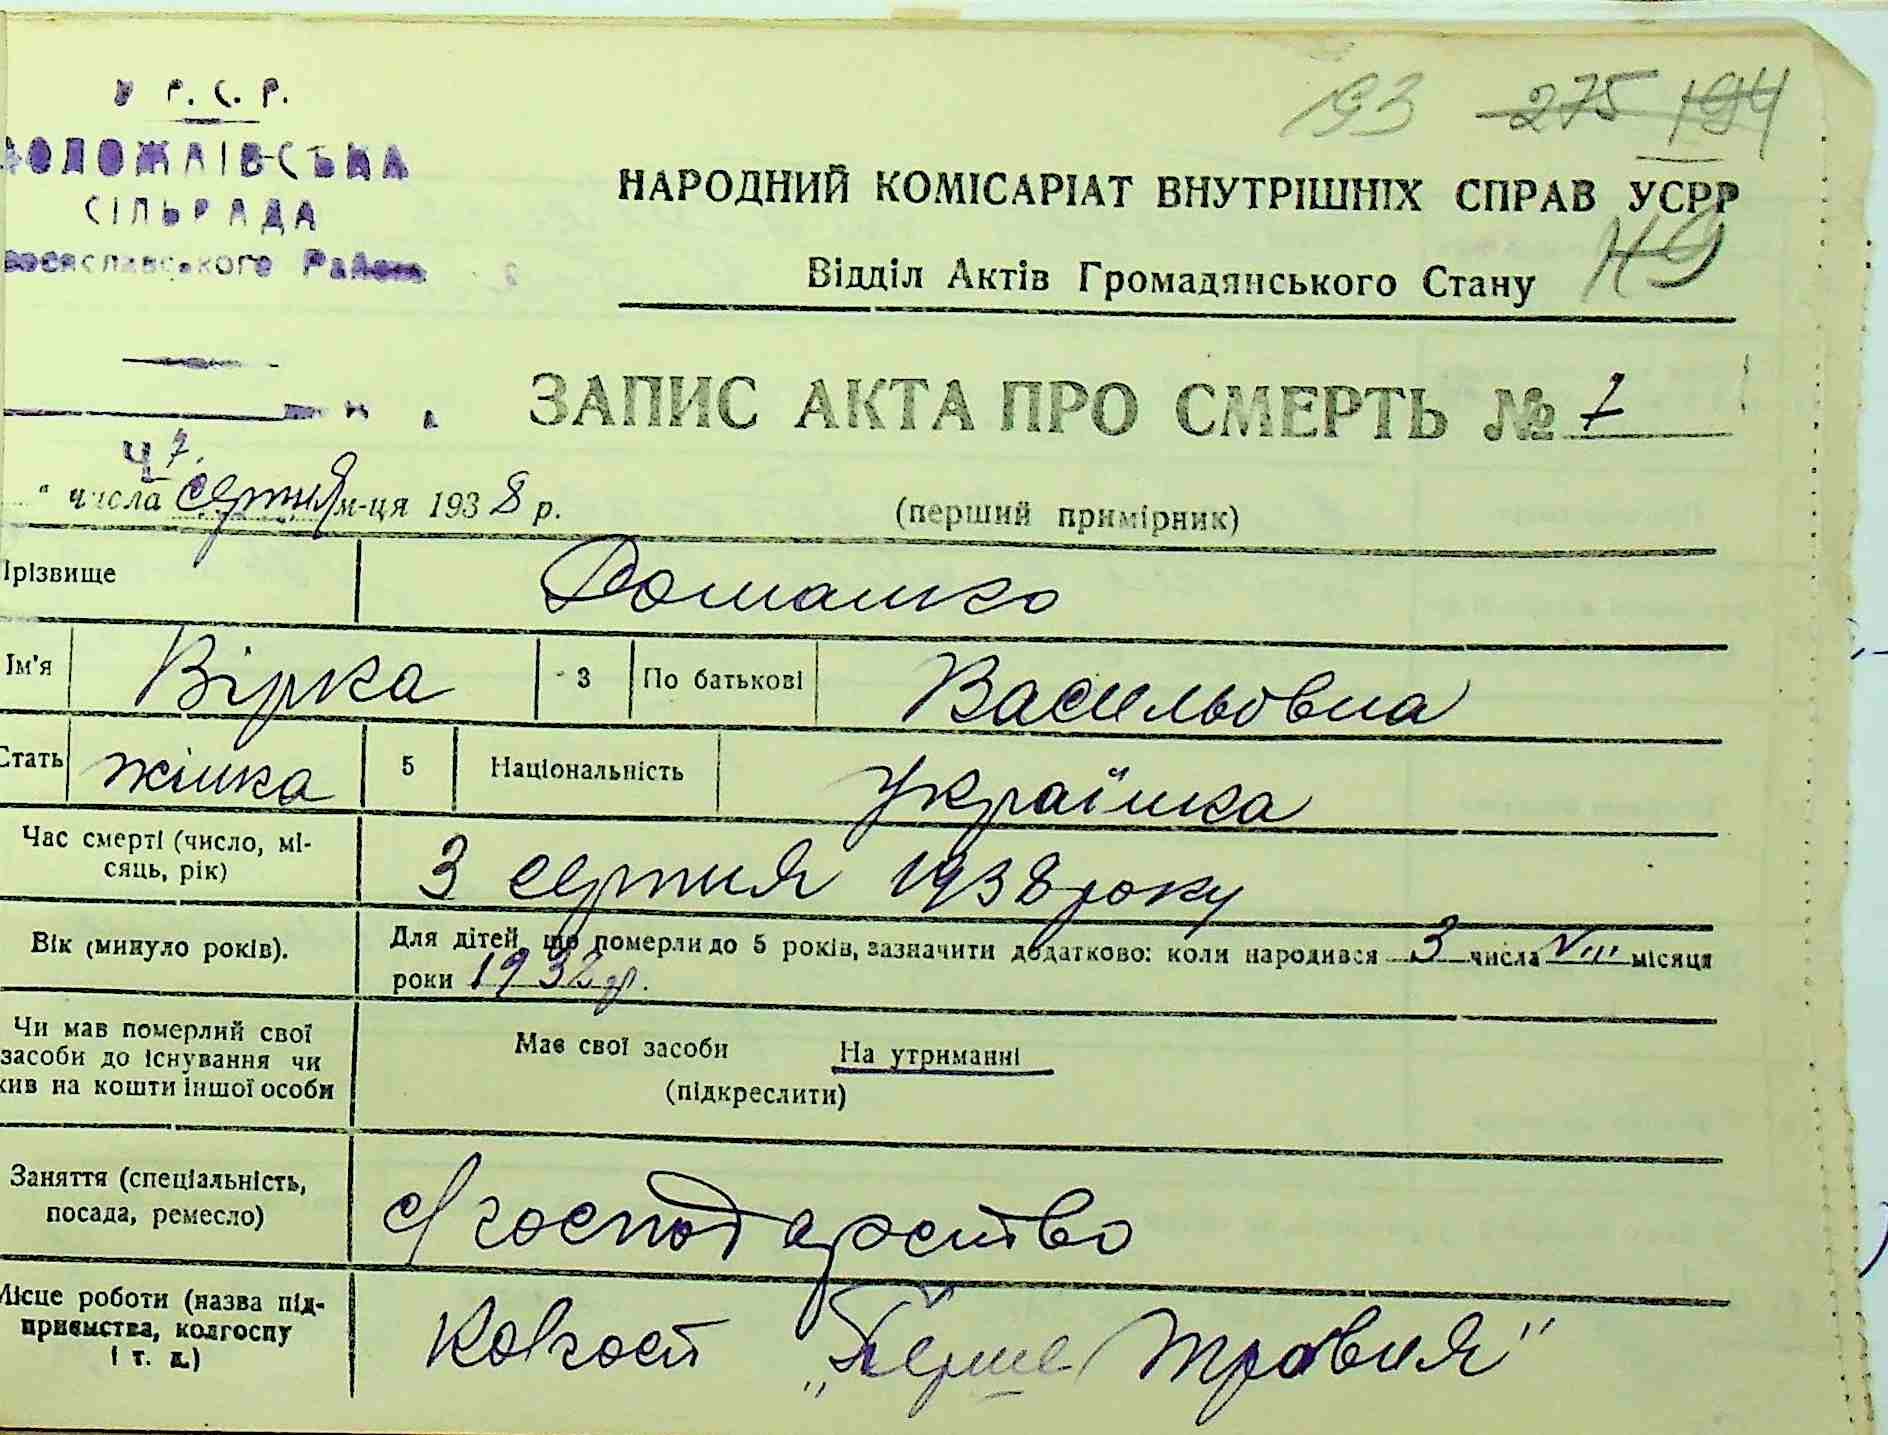 У Р. С. Р.
193 275 194
ОДОЖАІВСЬКА
СІЛЬРАДА
НАРОДНИЙ КОМІСАРІАТ ВНУТРІШНІХ СПРАВ УСРР
Района
Відділ Актів Громадянського Стану
ЗАПИС АКТА ПРО СМЕРТЬ № 7
Ч 7.
" числа серпня м-ця 1938 р.
(перший примірник)
Прізвище Домашко
Ім'я Вірка 3 По батькові Васильовна
Стать жінка 5 Національність Українка
Час смерті (число, мі-
сяць, рік)
3 серпня 1938 року
Вік (минуло років).
Для дітей, що померли до 5 років, зазначити додатково: коли народився 3 числа VIII місяця
роки 1932 р.
Чи мав померлий свої
засоби до існування чи
жив на кошти іншої особи
Має свої засоби На утриманні
(підкреслити)
Заняття (спеціальність,
посада, ремесло)
с/господарство
Місце роботи (назва під-
приємства, колгоспу
і т. д.)
Колгосп „Перше Травня"